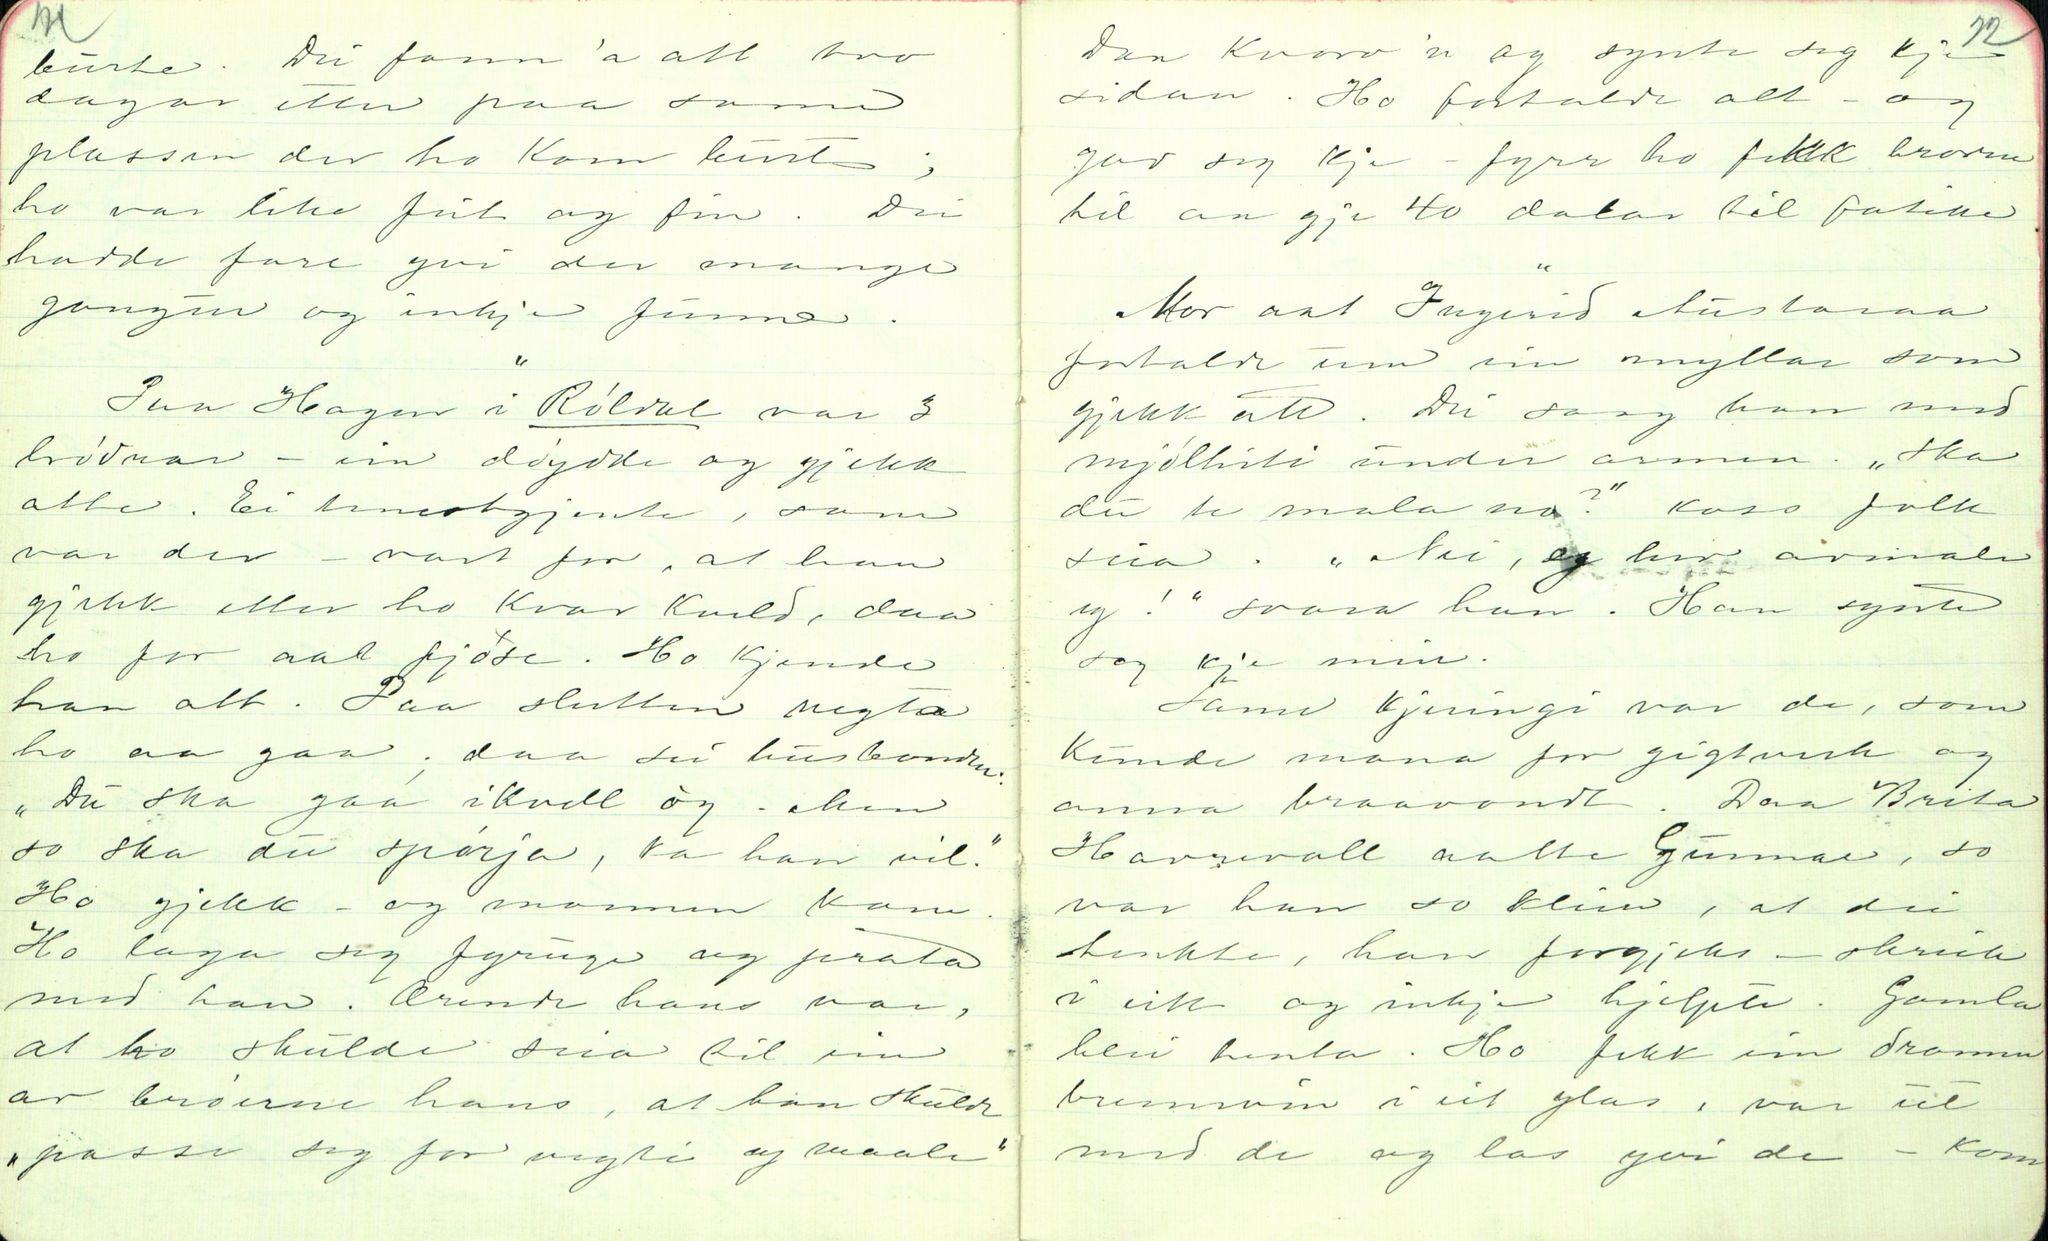 burte. Dei fann 'a att tvo
dagar etter paa same
plassen der ho kom burt;
ho var like feit og fin. Dei
hadde fare yvi der mange
gongur og inkje funne.
"
Paa Hagen i Röldal var 3
brödrar - ein döydde og gjekk
atte. Ei tenestgjente, som
var der - vart for, at han
gjekk etter ho kvar kveld, daa
ho for aat fjöse. Ho kjende
han att. Paa slutten negta
ho aa gaa; daa sei husbonden:
„Du ska gaa ikvell ög. Men
so ska du spörja, ka han vil."
Ho gjekk - og mannen kom.
Ho laga seg fyruge og prata
med han. Ærende hans var,
at ho skulde seia til ein
av bröerne hans, at han skulde
„passe seg for vegti og maale"
72
Dan kvarv 'n og synte seg kje
sidan. Ho fortalde alt - og
gav seg kje - fyrr ho fekk broren
til aa gje 40 dalar til fatike
"
Mor aat Ingerid Austaraa
fortalde um ein myllar som
gjekk att. Dei saag han med
mjölhiti under armen. „Ska
du te mala no?" kass folk
seia. „Nei, eg her avmale
eg!" svara han. Han synte
seg kje meir.
Same kjeringi var de, som
kunde mana for gigtverk og
anna braavondt. Daa Brita
Havrevoll aatte Gunnar, so
var han so klein, at dei
tenkte, han forgjeks - skreik
i eitt og inkje hjelpte. Gamla
blei henta. Ho fekk ein dramm
brennvin i eit glas, var ut
med de og las yvi de - kom